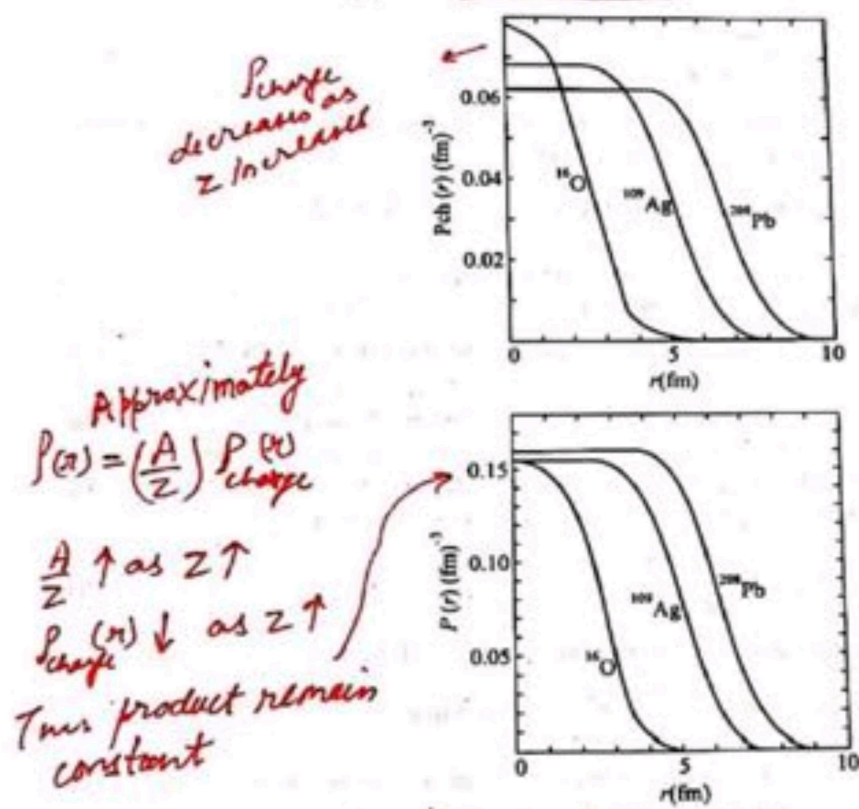 ρcharge
decreases as
z increases
Pch (r) (fm)⁻³
0.06
0.04
0.02
¹⁶O
¹⁰⁹Ag
²⁰⁸Pb
0 5 10
r(fm)
Approximately
ρ(r) = (A/Z) ρcharge(r)
A/Z ↑ as Z ↑
ρcharge(r) ↓ as Z ↑
Thus product remain
constant
P (r) (fm)⁻³
0.15
0.10
0.05
¹⁶O
¹⁰⁹Ag
²⁰⁸Pb
0 5 10
r(fm)